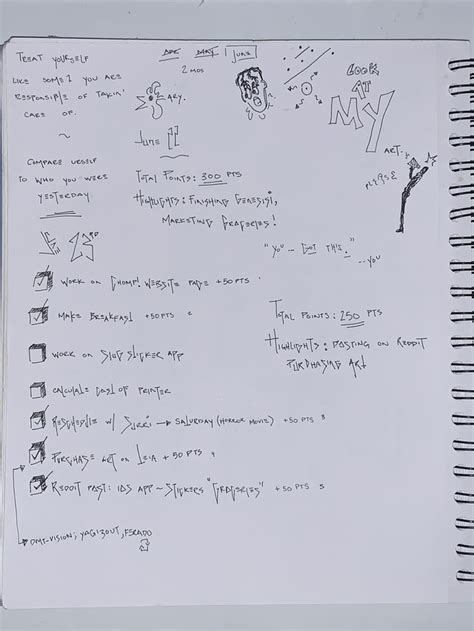 TREAT YOURSELF
LIKE SOME1 YOU ARE
RESPONSIBLE OF TAKIN'
CARE OF.
~
COMPARE URSELF
TO WHO YOU WERE
YESTERDAY
JUNE
2 MOS
ARY.
JUNE
TOTAL POINTS: 300 PTS
HIGHLIGHTS: FINISHING GENESIS!,
MARKETING GRAPERIES!
LOOK
AT
MY
ART.
"YOU ... GOT THIS."
...YOU
WORK ON CHOMP! WEBSITE PAGE +50 PTS
MAKE BREAKFAST +50 PTS 2
WORK ON SLUG STICKER APP
CALCULATE COST OF PRINTER
RESCHEDULE W/ SURRI → SATURDAY (HORROR MOVIE) +50 PTS 3
PURCHASE ART ON +50 PTS 4
REDDIT POST: IOS APP ~ STICKERS "GRAPERIES" +50 PTS 5
TOTAL POINTS: 250 PTS
HIGHLIGHTS: POSTING ON REDDIT
PURCHASING ART
DMT-VISION, YAGI3OUT, FERADO